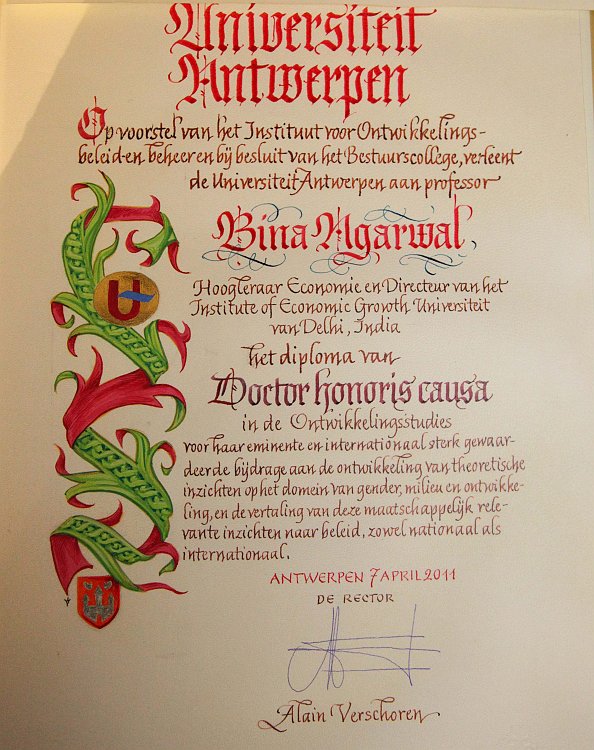 Universiteit
Antwerpen
Op voorstel van het Instituut voor Ontwikkelings-
beleid en beheer en bij besluit van het Bestuurscollege, verleent
de Universiteit Antwerpen aan professor
Bina Agarwal,
Hoogleraar Economie en Directeur van het
Institute of Economic Growth Universiteit
van Delhi, India
het diploma van
Doctor honoris causa
in de Ontwikkelingsstudies
voor haar eminente en internationaal sterk gewaar-
deerde bijdrage aan de ontwikkeling van theoretische
inzichten op het domein van gender, milieu en ontwikke-
ling, en de vertaling van deze maatschappelijk rele-
vante inzichten naar beleid, zowel nationaal als
internationaal.
ANTWERPEN 7 APRIL 2011
DE RECTOR
Alain Verschoren